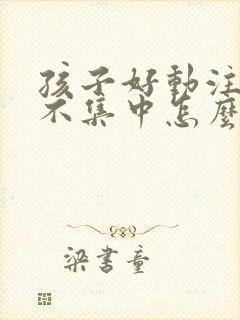 孩子好動注
不集中怎麼
梁書童